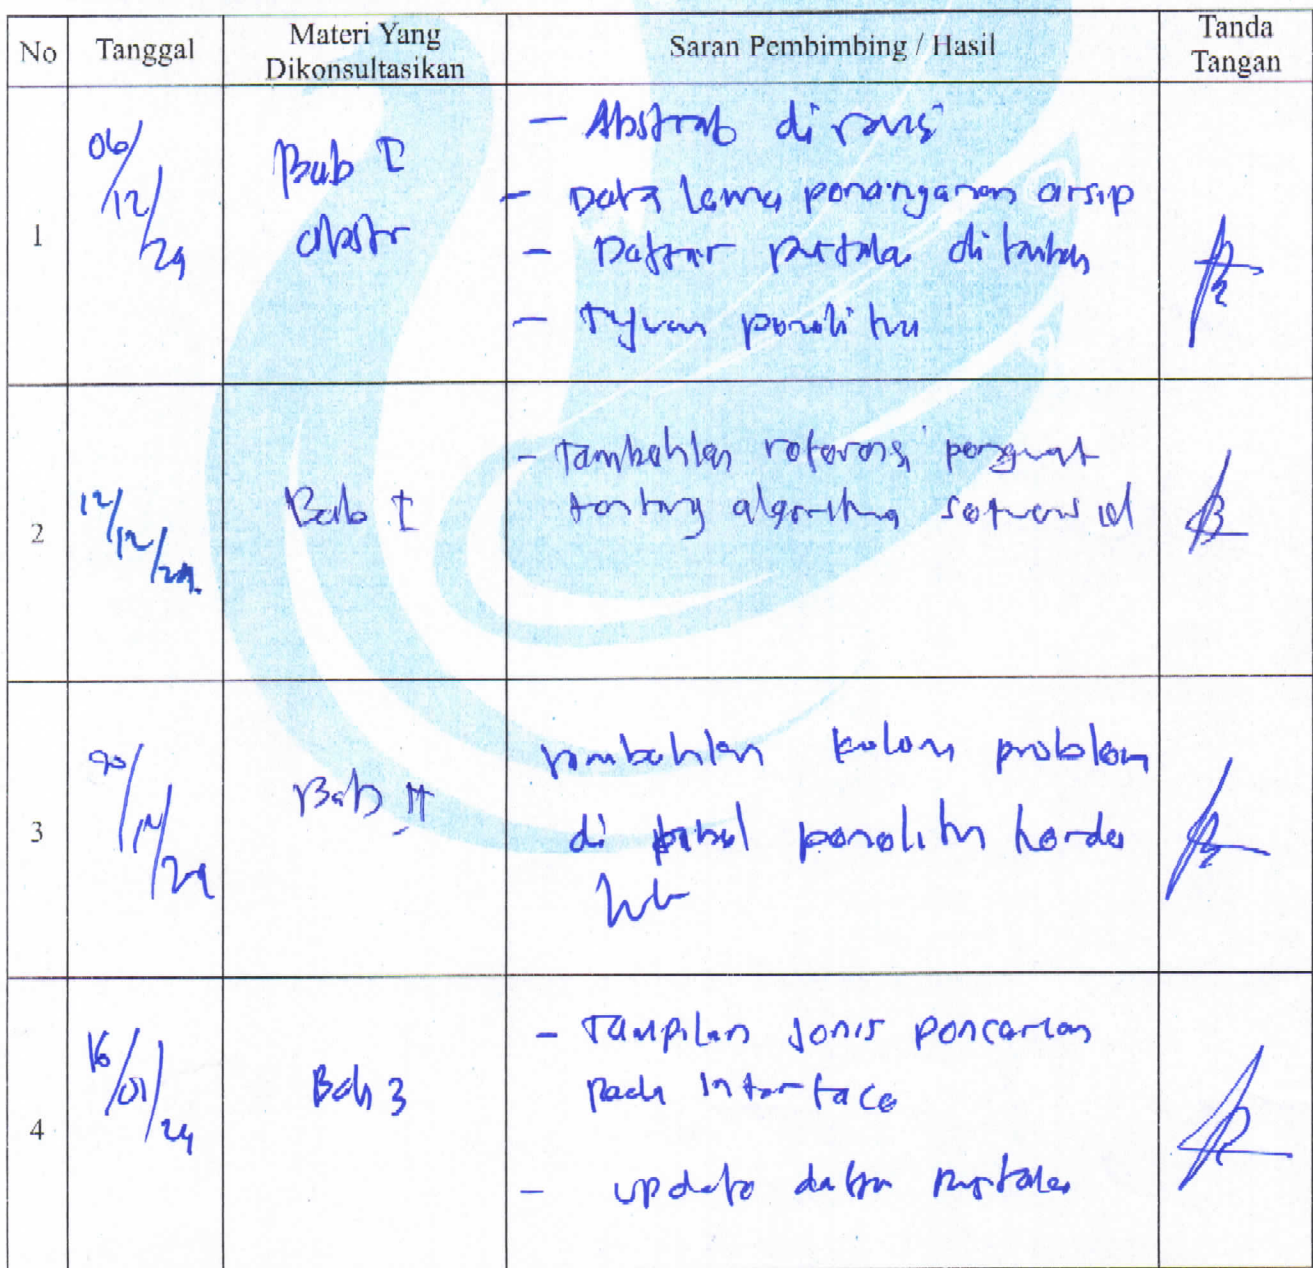 No
Tanggal
Materi Yang
Dikonsultasikan
Saran Pembimbing / Hasil
Tanda
Tangan
1
06/12/24
Bab I
Abstr
- Abstrak di revisi
- Data lama penanganan arsip
- Daftar pustaka di tambah
- Tujuan peneliti
2
12/12/24
Bab I
- Tambahkan referensi penguat
tentang algoritma sekuensial
3
/12/24
Bab II
Tambahkan kolom problem
di tabel peneliti
4
16/01/24
Bab 3
- Tampilan jenis pencarian
pada interface
- update daftar pustaka